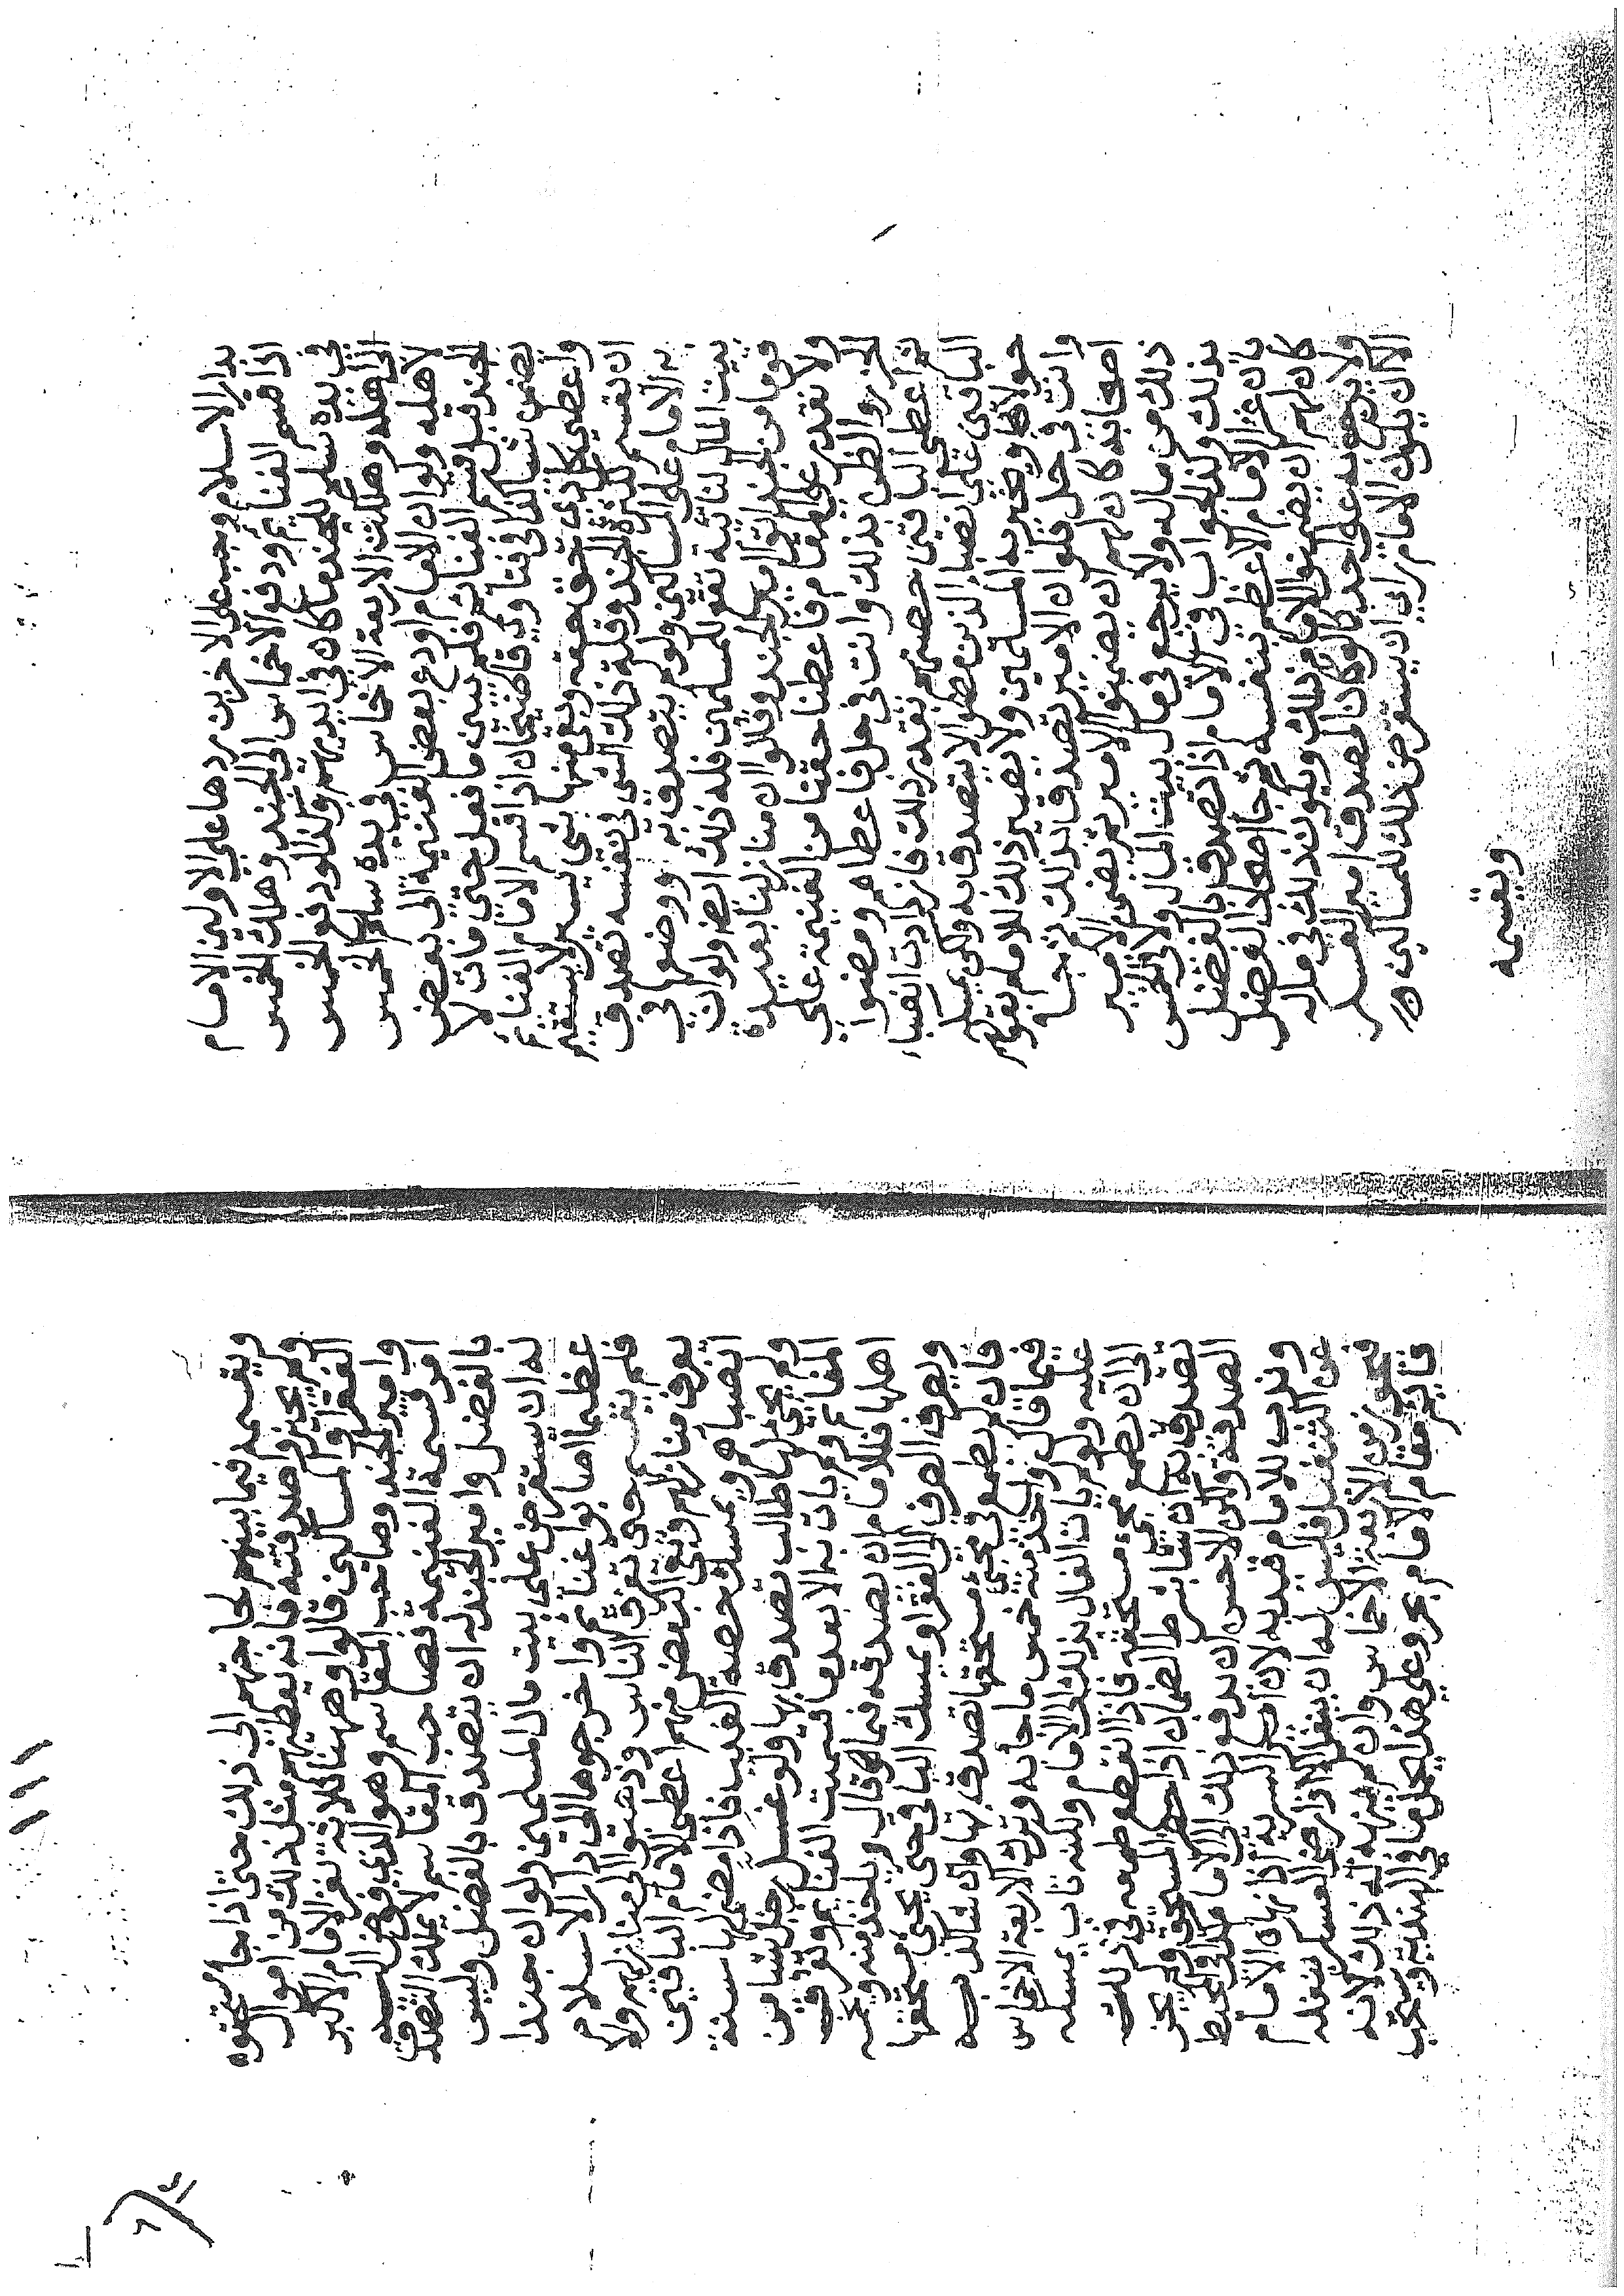 بدار الاسلام وجب على الاخرين ردها على الاولين الامام
اذا قسم الغنايم ودفع الاخماس الى الجند وهلك الخمس
في يده سلم للجند ما كان في ايديهم وكذا لو دفع الخمس
الى اهله وهلكت الاربعة الاخماس في يده سلم الخمس
لاهله ولو ان الامام اودع بعض الغنيمة الى بعض
الجند قبل قسم الغنايم فلم يبين ما فعل حتى مات لا
يضمن شيا كذا في فتاوى قاضيخان اذا قسم الامام الغنايم
واعطى كل ذي حق حقه وبقي منها شي يسير لا يستقيم
ان يقسم لكثرة الجند وقلة ذلك الشي في نفسه تصدق
به الامام على المساكين ولو لم يتصدق به ووضعها في
بيت المال لنايبة تقع للمسلمين فله ذلك ايضا ولو ان
قوما من الجند اتوا امير الجند وقالوا ان منازلنا بعيدة
ولا نقدر على المقام فاعطنا حقنا من الغنيمة على
الحزر والظن بذلك وانت في حل فاعطاهم ومضوا
ثم اعطى الباقين حصتهم بقدر ذلك فازدادت انصباء
الباقين على انصباء الذين مضوا لا يتصدق به ولكن يمسك
حولا كاملا ويخبر به المسلمين ولا يصير ذلك للامام بقولهم
وانت في حل فلو ان الامير تصدق بذلك ثم جاء
اصحابه كان لهم ان يضمنوا الامير ثم يضمن الامير
ذلك من ماله ولا يرجع في مال بيت المال ولا في الخمس
بذلك وكذا الجواب في الامام اذا تصدق بالفضل
بان غزا الامام الاعظم بنفسه ثم جاء اصحاب الفضل
كان لهم ان يضمنوا الامام ذلك ويكون ذلك في ماله
ولا يرجع به على احد كما لو كان المصدق امير العسكر
الا ان يكون الامام راى ان يستقرض ذلك للمساكين
ويقسمه
ويقسمه فيما بينهم لحاجتهم الى ذلك حتى اذا جاء مستحقوه
ولم يجيزوا صدقته فانه يعطيهم مثل ذلك من اموال
الفقراء والمساكين قالوا وههنا ثلاثة نفر الامام الاكبر
وامير الجند وصاحب المقاسم وهو الذي فوض اليه
امر قسمة الغنيمة فصاحب المقاسم لا يملك التصدق
بالفضل وامير الجند له ان يتصدق بالفضل وليس
له ان يستقرض على بيت مال المسلمين ولو ان جندا
عظيما اصابوا غنايم واخرجوها الى دار الاسلام
فلم يقسم حتى تفرق الناس وذهبوا الى منازلهم ولا
يعرف منازلهم وبقي البعض منهم اعطى الامام الباقين
انصباهم ويمسك حصة الغيب فاذا مضى لها سنة
ولم يجي لها طالب تصدق بها ولو غل رجل شيا من
المغانم ولم يات به الا بعد ما قسمت الغنايم وتفرق
اهلها فللامام ان يصدقه فيما قال وياخذ منه ويخمسه
ويصرف الخمس الى الفقراء ويمسك الباقي حتى يجي مستحقها
فان لم يطمع في مجي مستحقها تصدق بها وان شاء كذبه
فيما قال واخذ منه خمس ما جاء به وترك الاربعة الاخماس
عليه ولو لم يات الغال بذلك الى الامام ولكنه تاب يمسكه
الى ان يطمع مجي مستحقه فاذا انقطع طمعه في ذلك
تصدق به ان شاء بشرط الضمان اذا حضر المستحق ولم يجز
الصدقة ولكن الاحسن ان يدفع ذلك الى الامام
وندب للامام
عن التنفيل فليس له ان ينفل الا اذا رضي العسكر بنفله
فيجوز من الاربعة الاخماس وان لم ينهه فله ذلك لانه
قايم مقام الامام